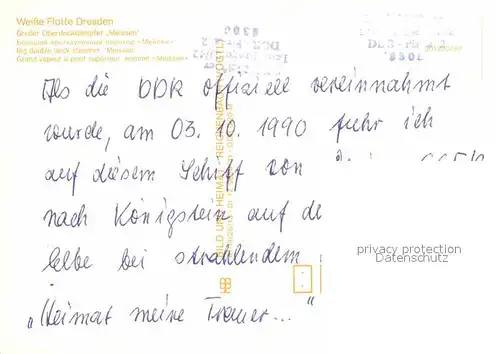 Weiße Flotte Dresden
Großer Oberdeckdampfer „Meissen“
Big saddle deck steamer „Meissen“
Grand vapeur à pont supérieur nommé «Meissen»
Als die DDR offiziell vereinnahmt
wurde, am 03. 10. 1990 fuhr ich
auf diesem Schiff von
nach Königstein auf de
Elbe bei strahlendem
„Heimat meine Trauer..."
BILD UND HEIMAT REICHENBACH (VOGTL)
privacy protection
Datenschutz